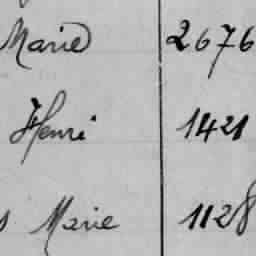 Marie 2676
Henri 1421
s Marie 1128